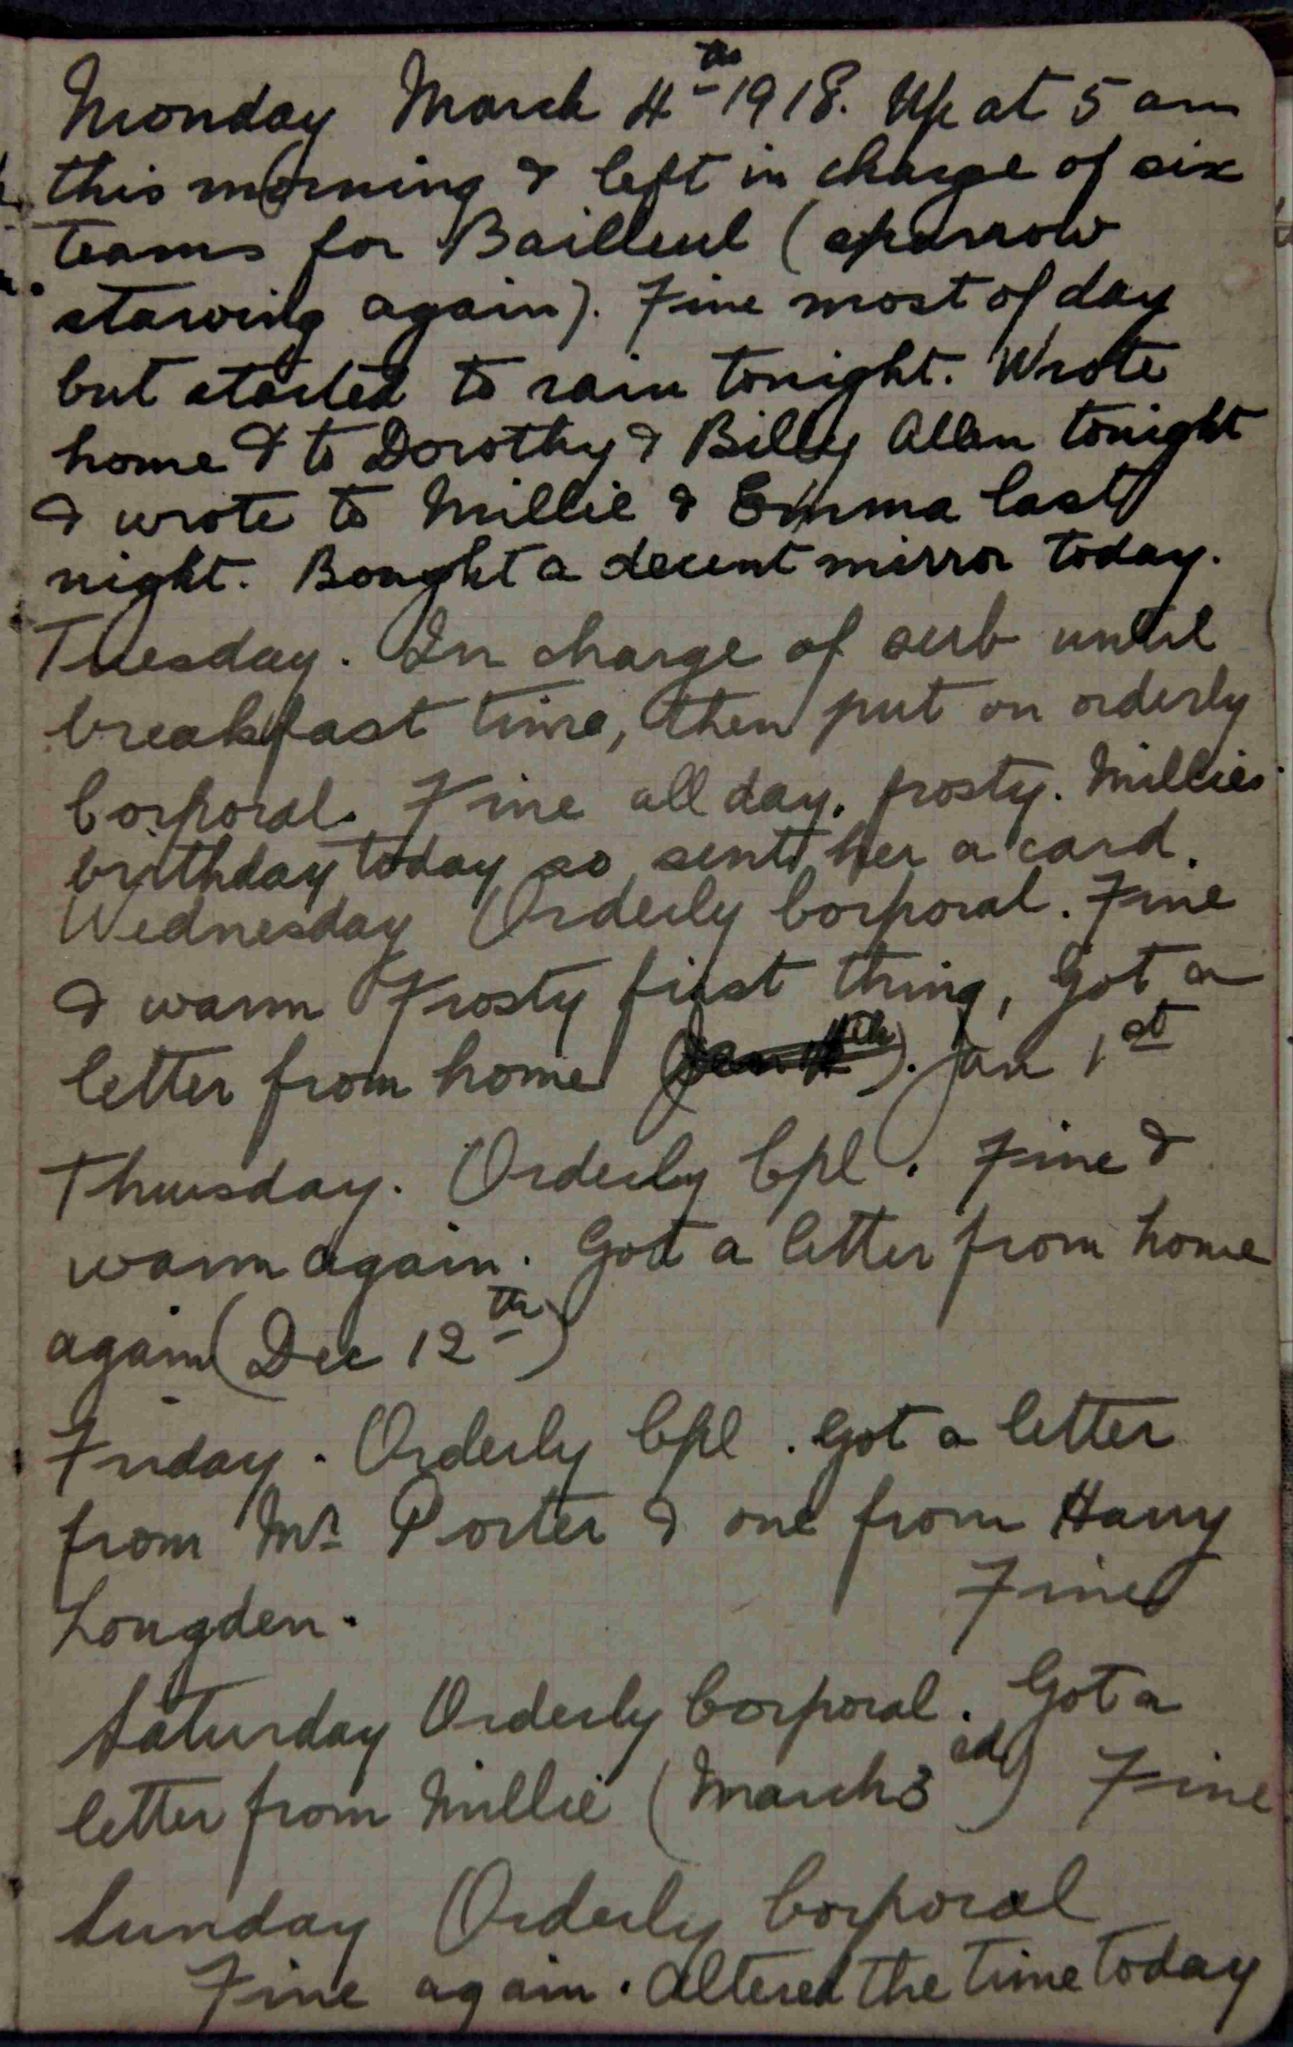 Monday March 4th 1918. Up at 5 am
this morning & left in charge of six
teams for Bailleul (sparrow
starving again). Fine most of day
but started to rain tonight. Wrote
home & to Dorothy & Billy Allen tonight
& wrote to Millie & Emma last
night. Bought a decent mirror today.
Tuesday. In charge of sub until
breakfast time, then put on orderly
Corporal. Fine all day, frosty. Millies
birthday today so sent her a card.
Wednesday Orderly Corporal. Fine
& warm Frosty first thing, Got a
letter from home ( ). Jan 1st
Thursday. Orderly Cpl. Fine &
warm again. Got a letter from home
again (Dec 12th)
Friday. Orderly Cpl. Got a letter
from Mr Porter & one from Harry
Longden. Fine
Saturday Orderly Corporal. Got a
letter from Millie (March 3rd) Fine
Sunday Orderly Corporal
Fine again. Altered the time today